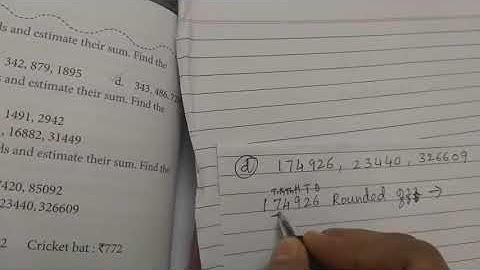 ds and estimate their sum. Find the
342, 879, 1895 d. 343, 486,
ds and estimate their sum. Find the
1491, 2942
, 16882, 31449
ds and estimate their sum. Find the
7420, 85092
23440, 326609
2 Cricket bat : ₹772
(d) 174926, 23440, 326609
T.Th Th H T O
174926 Rounded →